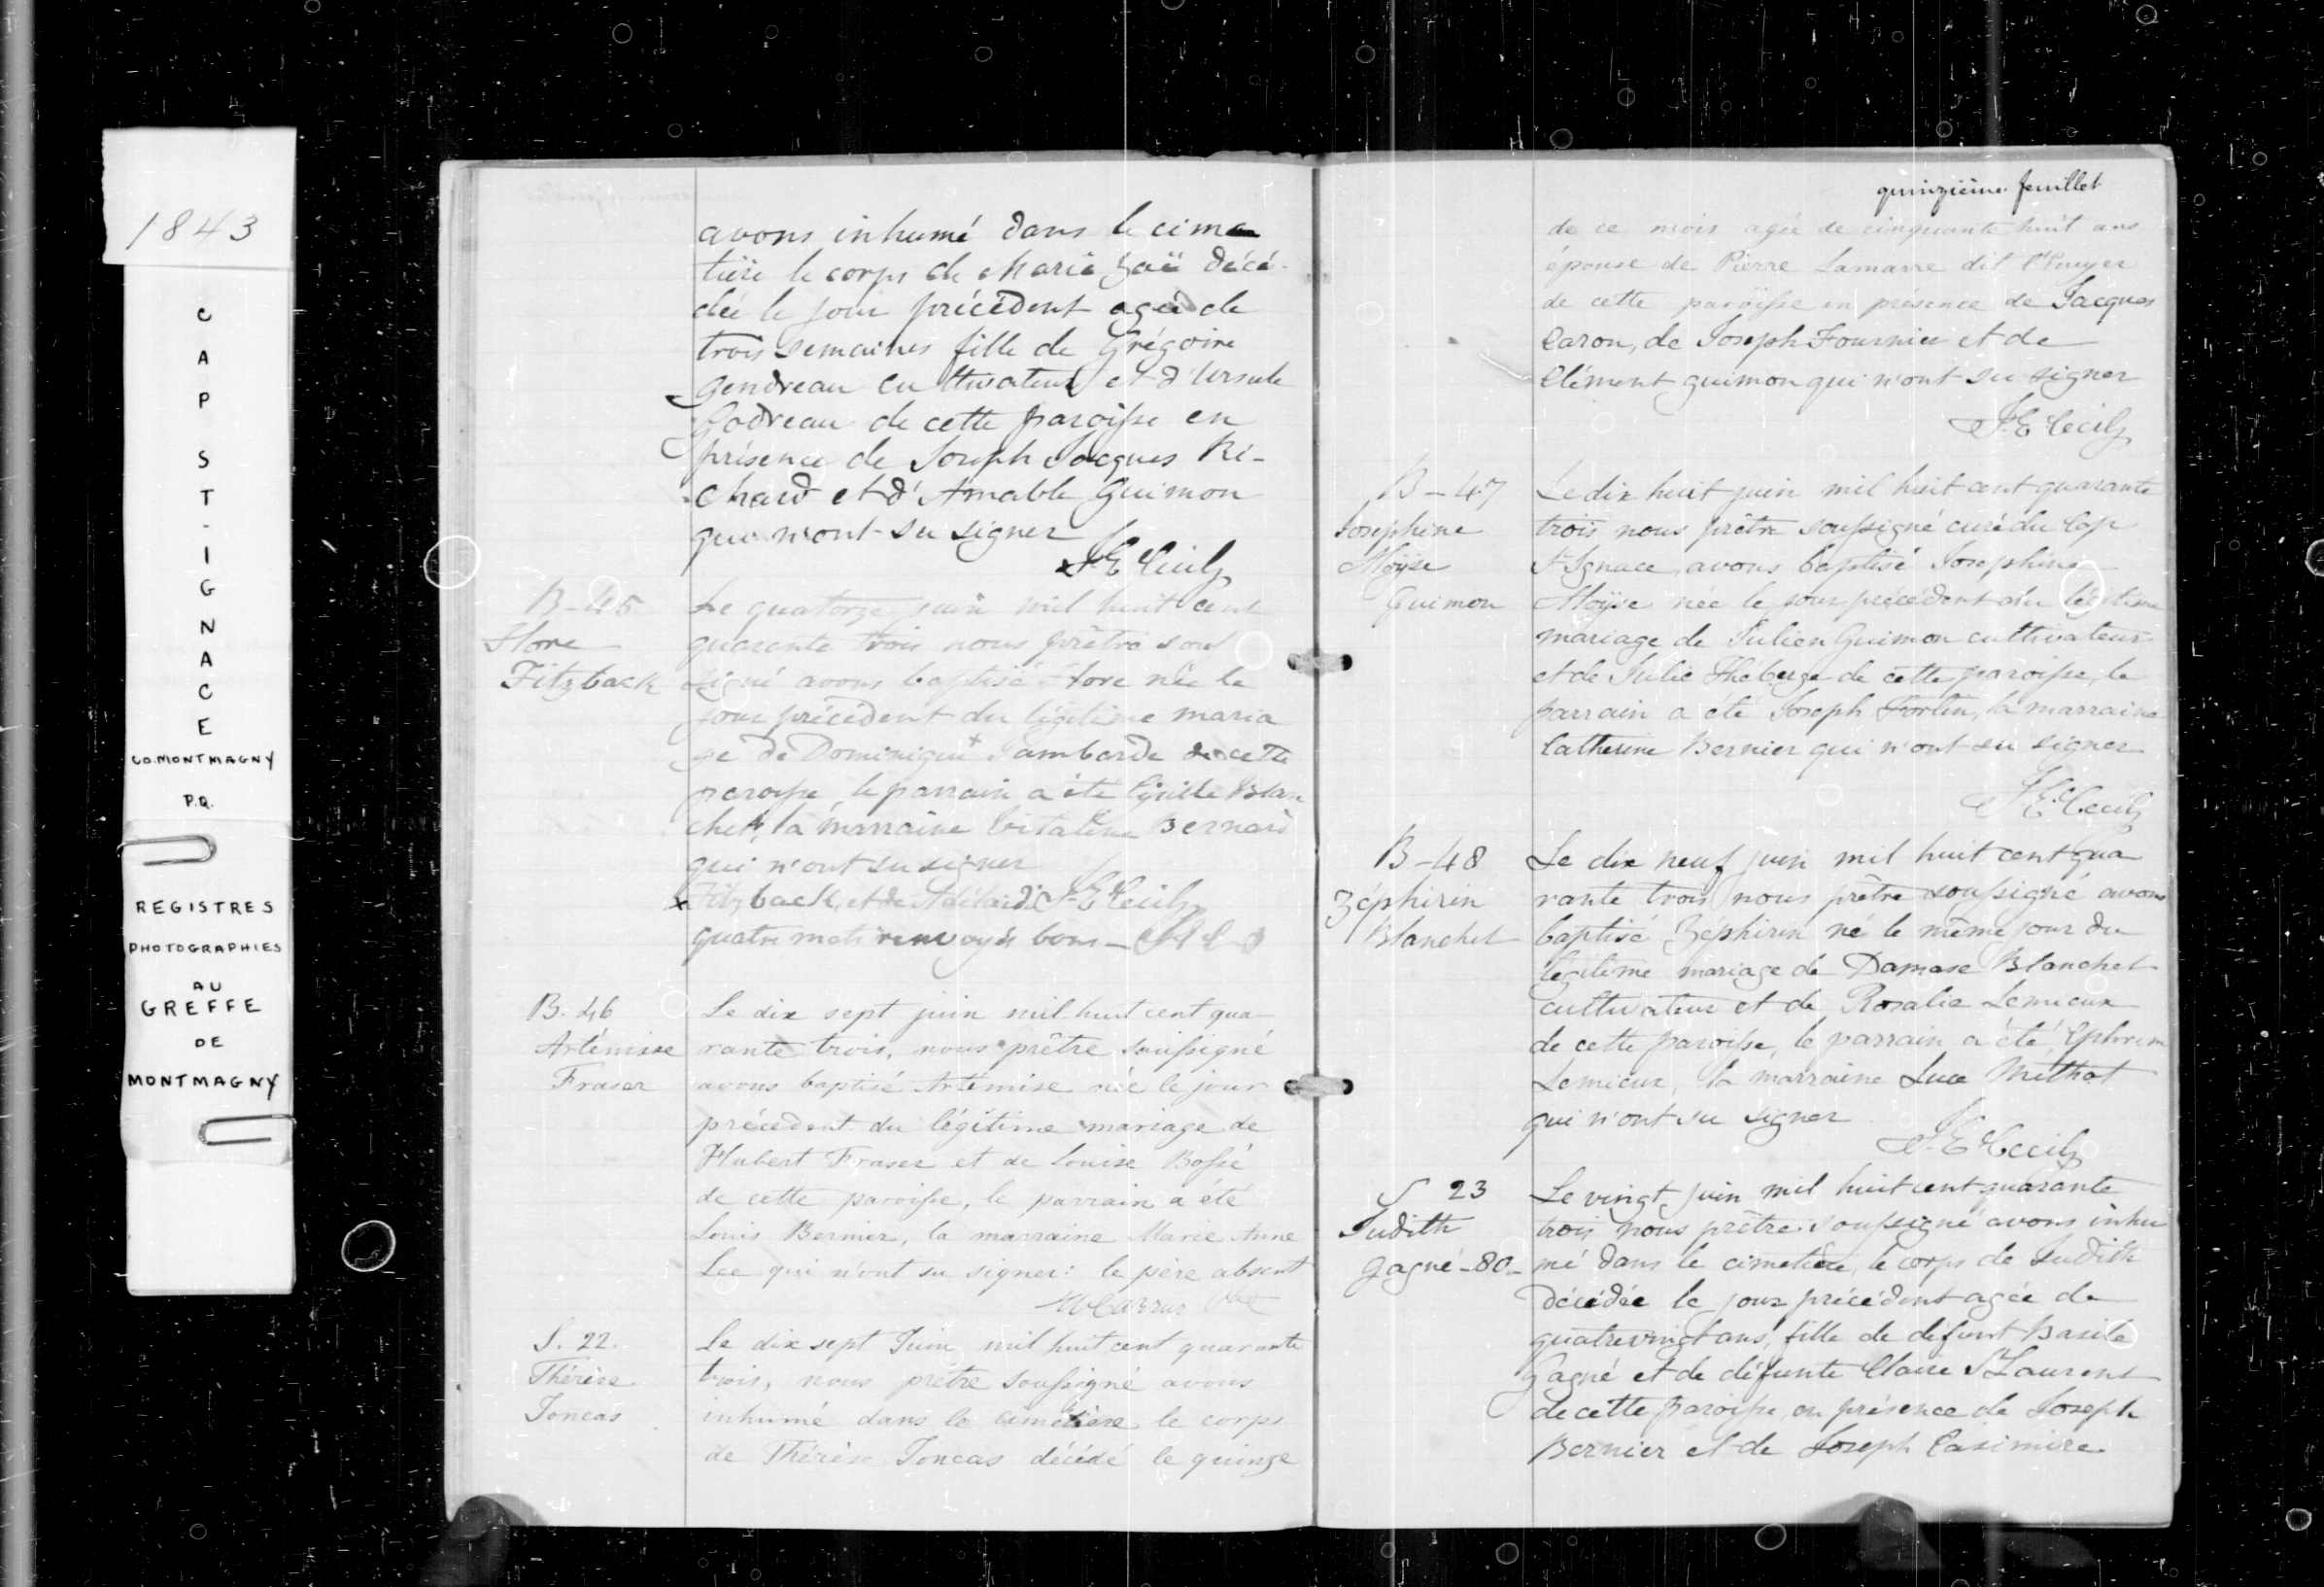 1843
CAP ST-IGNACE
CO. MONTMAGNY
P.Q.
REGISTRES
PHOTOGRAPHIES
AU
GREFFE
DE
MONTMAGNY
avons inhumé dans le cime
tière le corps de Marie Zoë décé-
dée le jour précédent agée de
trois semaines fille de Grégoire
Gendreau cultivateur et d'Ursule
Godreau de cette paroisse en
présence de Joseph Jacques Ri-
chard et d'Amable Guimon
qui n'ont su signer
J. E. Cecil
B-45
Flore
Fitzback
Le quatorze juin mil huit cent
quarante trois nous prêtre sous
signé avons baptisé Flore née le
jour précédent du légitime maria
ge de Dominique + Lambarde de cette
paroisse, le parrain a été Cyrille Blan
chet, la marraine Vitaline Bernard
qui n'ont su signer
x Fitzback, et de Adélaïde J. E. Cecil
quatre mots renvoyés bons —
B. 46
Artémise
Fraser
Le dix sept juin mil huit cent qua
rante trois, nous prêtre soussigné
avons baptisé Artémise née le jour
précédent du légitime mariage de
Hubert Fraser et de Louise Bossé
de cette paroisse, le parrain a été
Louis Bernier, la marraine Marie Anne
Lee qui n'ont su signer: le père absent
S. 22.
Thérèse
Joncas
Le dix sept Juin mil huit cent quarante
trois, nous prêtre soussigné avons
inhumé dans le cimetière le corps
de Thérèse Joncas décédé le quinze
quinzième feuillet
de ce mois agée de cinquante huit ans
épouse de Pierre Lamarre dit
de cette paroisse en présence de Jacques
Caron, de Joseph Fournier et de
Clément Guimon qui n'ont su signer
J. E. Cecil
B-47
Josephine
Moÿse
Guimon
Le dix huit juin mil huit cent quarante
trois nous prêtre soussigné curé du Cap
St Ignace avons baptisé Josephine
Moÿse née le jour précédent du légitime
mariage de Julien Guimon cultivateur
et de Julie Theberge de cette paroisse, le
parrain a été Joseph Fortin, la marraine
Catherine Bernier qui n'ont su signer
J. E. Cecil
B-48
Zéphirin
Blanchet
Le dix neuf juin mil huit cent qua
rante trois nous prêtre soussigné avons
baptisé Zéphirin né le même jour du
légitime mariage de Damase Blanchet
cultivateur et de Rosalie Lemieux
de cette paroisse, le parrain a été Ephrem
Lemieux, la marraine Luce Méthot
qui n'ont su signer
J. E. Cecil
S 23
Judith
Gagné-80-
Le vingt juin mil huit cent quarante
trois nous prêtre soussigné avons inhu
mé dans le cimetière, le corps de Judith
Décédée le jour précédent agée de
quatrevingt ans, fille de défunt Basile
Gagné et de défunte Claire St Laurent
de cette paroisse en présence de Joseph
Bernier et de Joseph Casimire